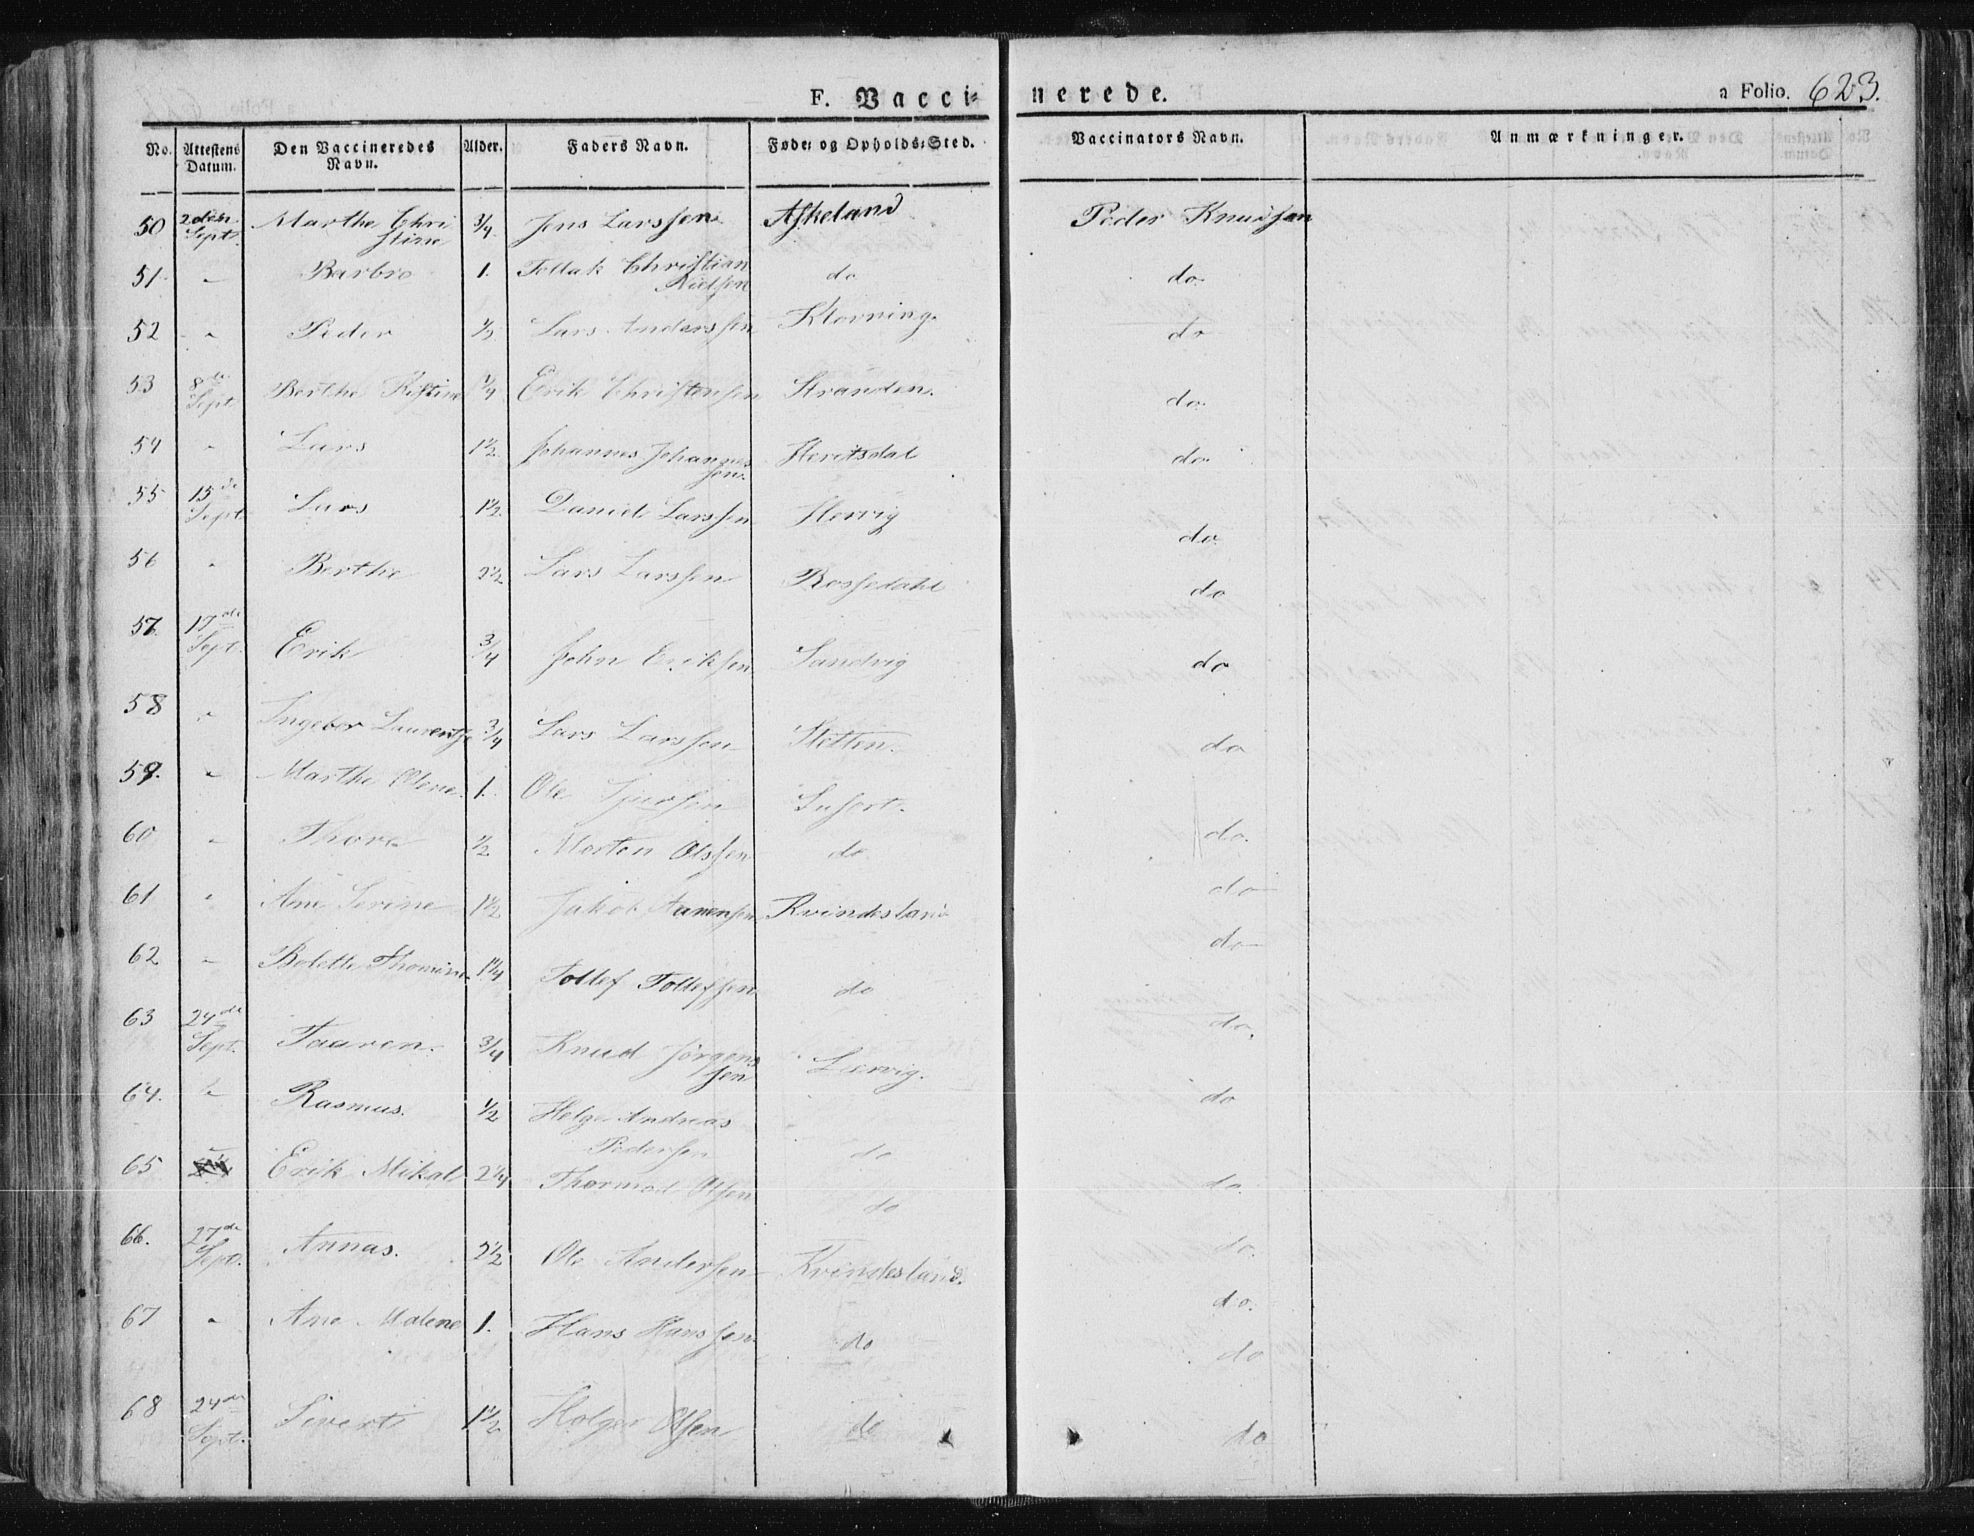 F. Vacci= nerede. a Folio. 623.
No. Attestens Datum. Den Vaccineredes Navn. Alder. Faders Navn. Føde= og Opholds=Sted. Vaccinators Navn. Anmærkninger.
50 2den Sept. Marthe Chri stine 3/4 Jens Larssen Askeland Peder Knudsen
51 " Barbro 1. Tollak Christian do do
52 " Peder Lars Anderssen Klovning do
53 8de Sept Berthe Kistine Erik Christensen Stranden. do
54 " Lars 1 1/2 Johannes Johannes sen. do
55 15de Sept. Lars 1 1/2 Daniel Larssen Hervig do
56 " Berthe 2 1/2 Lars Larssen Rossedahl do
57. 17de Sept. Erik 3/4 John Eriksen Sandvig do
58 " Ingebor 3/4 Lars Larssen do
59. " Marthe Olene. 1. Ole do.
60 " Thore 1/2 Morten Olssen do do
61 " Ane Serine 1 1/2 Jakob Kvindesland do
62 " Bolette Thomine 1 1/4 Tollef Tollefsen do do.
63 24de Sept. Taaren. 3/4 Knud Jørgens sen Lervig. do
64. " Rasmus. 1/2 Helge Andreas Pedersen do do.
65 " Erik Mikal 2 1/4 Thormod Olsen do do.
66. 27de Sept. Annas. 2 1/2 Ole Andersen Kvindesland. do.
67 " Ane Malene 1. Hans Hanssen do do
68 24de Sept. Sivert 1 1/2 Holger Olsen do do